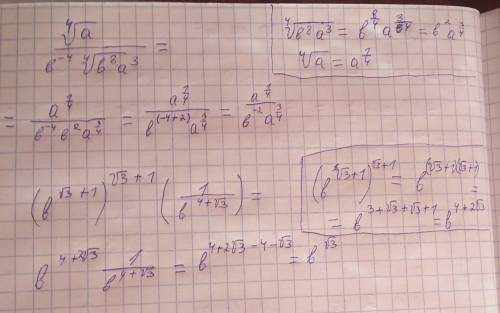 ⁴√a / (b⁻⁴ ⁴√(b⁸a³)) =
⁴√(b⁸a³) = b^(8/4) a^(3/4) = b² a^(3/4)
⁴√a = a^(1/4)
= a^(1/4) / (b⁻⁴ b² a^(3/4)) = a^(1/4) / (b^(-4+2) a^(3/4)) = a^(1/4) / (b⁻² a^(3/4))
(b^(√3+1))^(√3+1) (1 / b^(4+√3)) =
(b^(√3+1))^(√3+1) = b^((√3+1)(√3+1)) =
= b^(3+√3+√3+1) = b^(4+2√3)
b^(4+2√3) 1 / b^(4+√3) = b^(4+2√3-4-√3) = b^(√3)